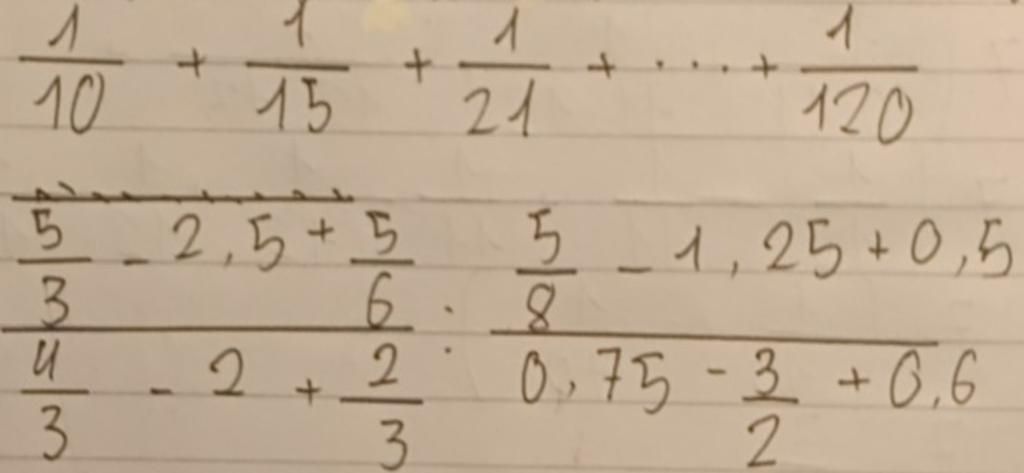 1/10 + 1/15 + 1/21 + ... + 1/120
(5/3 - 2,5 + 5/6)/(4/3 - 2 + 2/3) : (5/8 - 1,25 + 0,5)/(0,75 - 3/2 + 0,6)